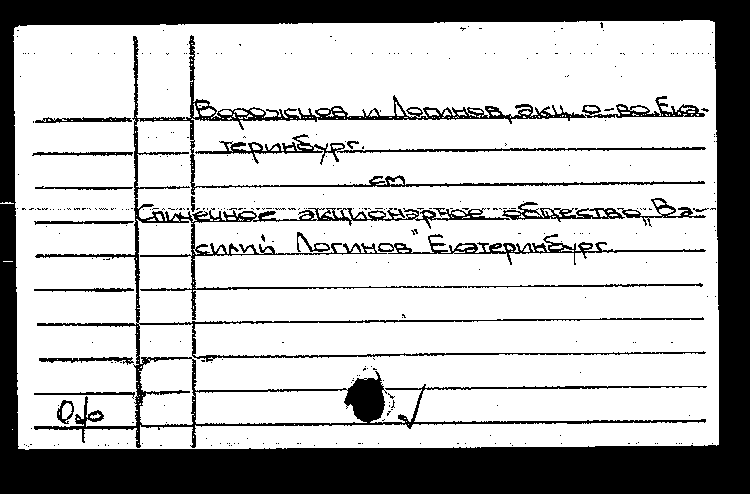 Ворожцов и Логинов, акц. о-во. Ека-
теринбург.
см
Спичечное акционерное общество „Ва-
силий Логинов" Екатеринбург